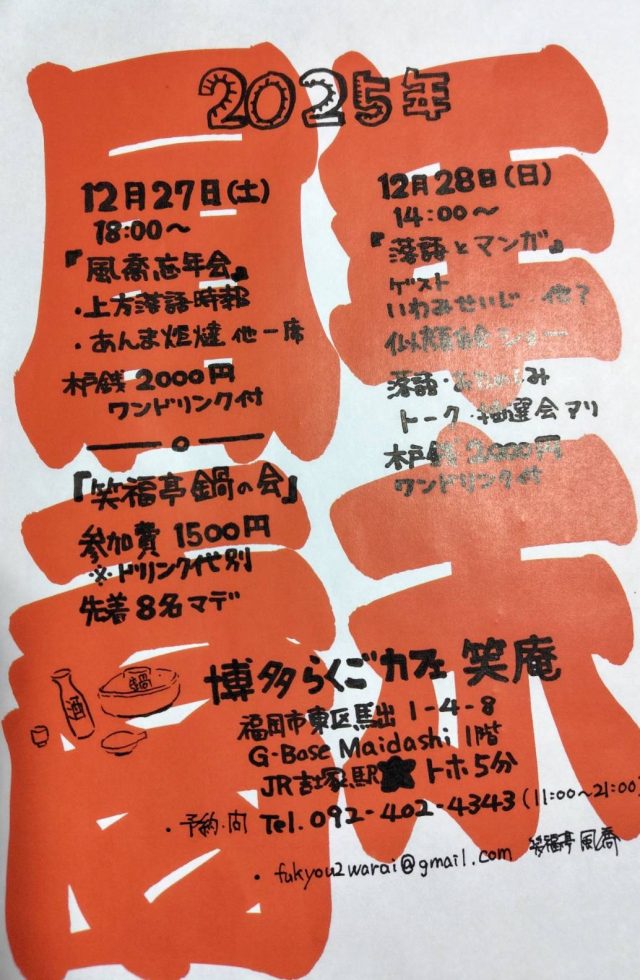 2025年
12月27日(土)
18:00～
『風喬忘年会』
・上方落語時報
・あんま炬燵 他一席
木戸銭 2000円
ワンドリンク付
「笑福亭鍋の会」
参加費 1500円
※ドリンク代別
先着8名マデ
12月28日(日)
14:00～
『落語とマンガ』
ゲスト
いわみせいじ 他？
似顔絵ショー
落語・おたのしみ
トーク・抽選会アリ
木戸銭 2000円
ワンドリンク付
鍋
酒
博多らくごカフェ 笑庵
福岡市東区馬出 1-4-8
G-Base Maidashi 1階
JR吉塚駅 トホ5分
・予約・問 Tel. 092-402-4343 (11:00～21:00)
・fukyou2warai@gmail.com 笑福亭 風喬